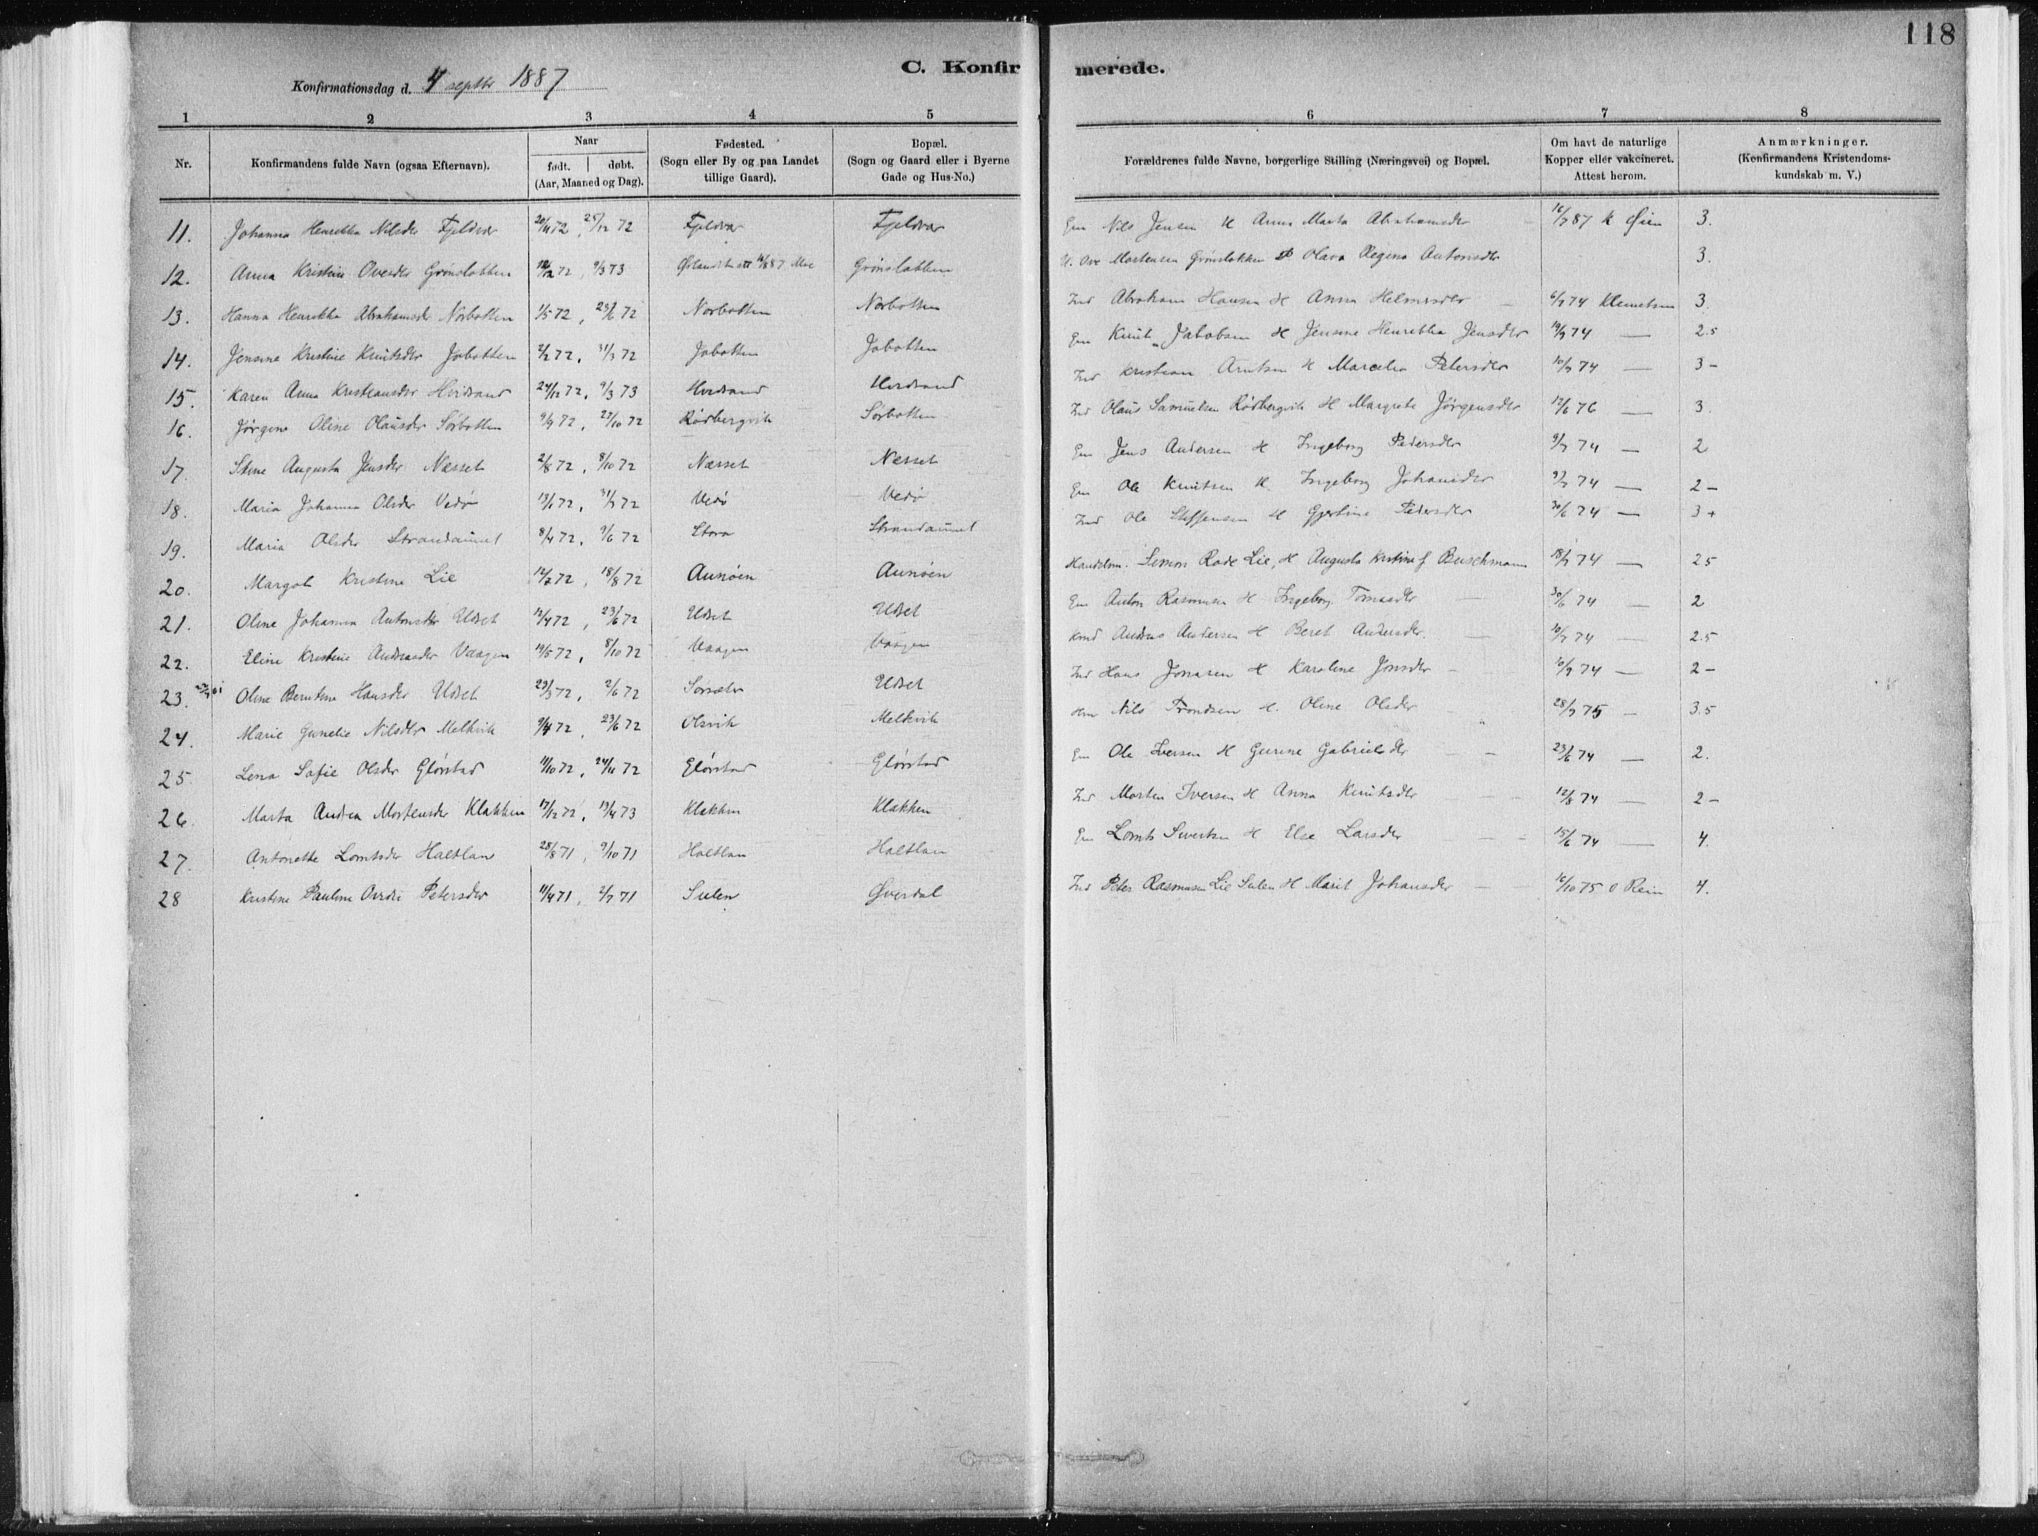 118
C. Konfirmerede.
Konfirmationsdag d. 4 septbr 1887
1 2 3 4 5 6 7 8
Nr. Konfirmandens fulde Navn (ogsaa Efternavn). Naar født. døbt. (Aar, Maaned og Dag). Fødested. (Sogn eller By og paa Landet tillige Gaard). Bopæl. (Sogn og Gaard eller i Byerne Gade og Hus-No.) Forældrenes fulde Navne, borgerlige Stilling (Næringsvei) og Bopæl. Om havt de naturlige Kopper eller vakcineret. Attest herom. Anmærkninger. (Konfirmandens Kristendomskundskab m. V.)
11. Johanna Henrikka Nilsdr Fjeldvær 20/11 72, 25/12 72 Fjeldvær Fjeldvær Em Nils Jensen H Anna Marta Abrahamsdr 16/7 87 K Øien 3.
12. Anna Kristine Ovesdr Grönsletten 72 9/3 73 Grönsletten U. Ove Mortensen Grönslekken Olava Regina Antonsdr 3.
13. Hanna Henrikka Abrahamsdr Norbotten 1/5 72, 23/6 72 Norbotten Norbotten Ind Abraham Hansen H Anna Helmersdr 6/7 74 Klemetsen 3.
14. Jensine Kristine Knutsdr Jøbotten 2/2 72, 31/3 72 Jøbotten Jøbotten Em Knut Jakobsen H Jensine Henrikka Jensdr 19/9 74 — 2.5
15. Karen Anna Kristiansdr Hvidsand 24/12 72, 9/3 73 Hvidsand Hvidsand Ind Kristian Arntsen H Marcelia Petersdr 10/7 74 — 3-
16. Jørgine Oline Olausdr Sörbotten 9/9 72, 27/10 72 Rødbergvik Sörbotten Ind Olaus Samuelsen Rödbergvik H Margrete Jörgensdr 12/6 76 — 3.
17. Stine Augusta Jensdr Næsset 2/8 72, 8/10 72 Næsset Næsset Em Jens Andersen H Ingeborg Pedersdr 9/7 74 — 2
18. Maria Johanna Olsdr Vedø 13/1 72, 31/3 72 Vedø Vedø Em Ole Knutsen H. Ingeborg Johansdr 9/7 74 — 2-
19. Maria Olsdr Strandaunet 8/4 72, 9/6 72 Stora Strandaunet Ind Ole Steffensen H Gjertine Pedersdr 30/6 74 — 3+
20. Margot Kristine Lie 12/7 72, 18/8 72 Aunøen Aunøen Handelsm. Simon Rode Lie, H Augusta Kristine f Buschmann 18/7 74 — 2.5
21. Oline Johanna Antonsdr Udset 12/4 72, 23/6 72 Udset Udset Em Anton Rasmusen H Ingeborg Tomasdr 30/6 74 — 2
22. Eline Kristine Andreasdr Vaagen 19/5 72, 8/10 72 Vaagen Vaagen Andreas Andersen H Beret Andersdr. 10/7 74 — 2.5
23. Oline Berntine Hansdr Udset 23/3 72, 2/6 72 Udset Ind Hans Jonasen H Karoline Jonsdr 10/9 74 — 2-
24. Marie Gunelie Nilsdtr Melkvik 9/4 72, 23/6 72 Olsvik Melkvik Hm Nils Trondsen H. Oline Olsdr 28/7 75 — 3.5
25 Lena Sofie Olsdr Glörstad 11/10 72, 24/11 72 Glörstad Glörstad Em Ole Iversen H Gurine Gabrielsdr 23/6 74 — 2.
26. Marta Andrea Mortensdr Klakken 17/12 72, 13/4 73 Klakken Klakken Ind Morten Iversen H Anna Knutsdr 12/8 74 — 2-
27. Antonette Lomtsdr Haltlan 28/8 71, 9/10 71 Haltlan Haltlan Em Lomts Sivertsen H Else Larsdr 15/6 74 — 4.
28 Kristine Pauline Petersdr 11/4 71, 2/7 71 Sulen Øverdal Ind Peter Rasmusen Lie Sulen H Marit Johansdr 16/10 75 O Rein 4.